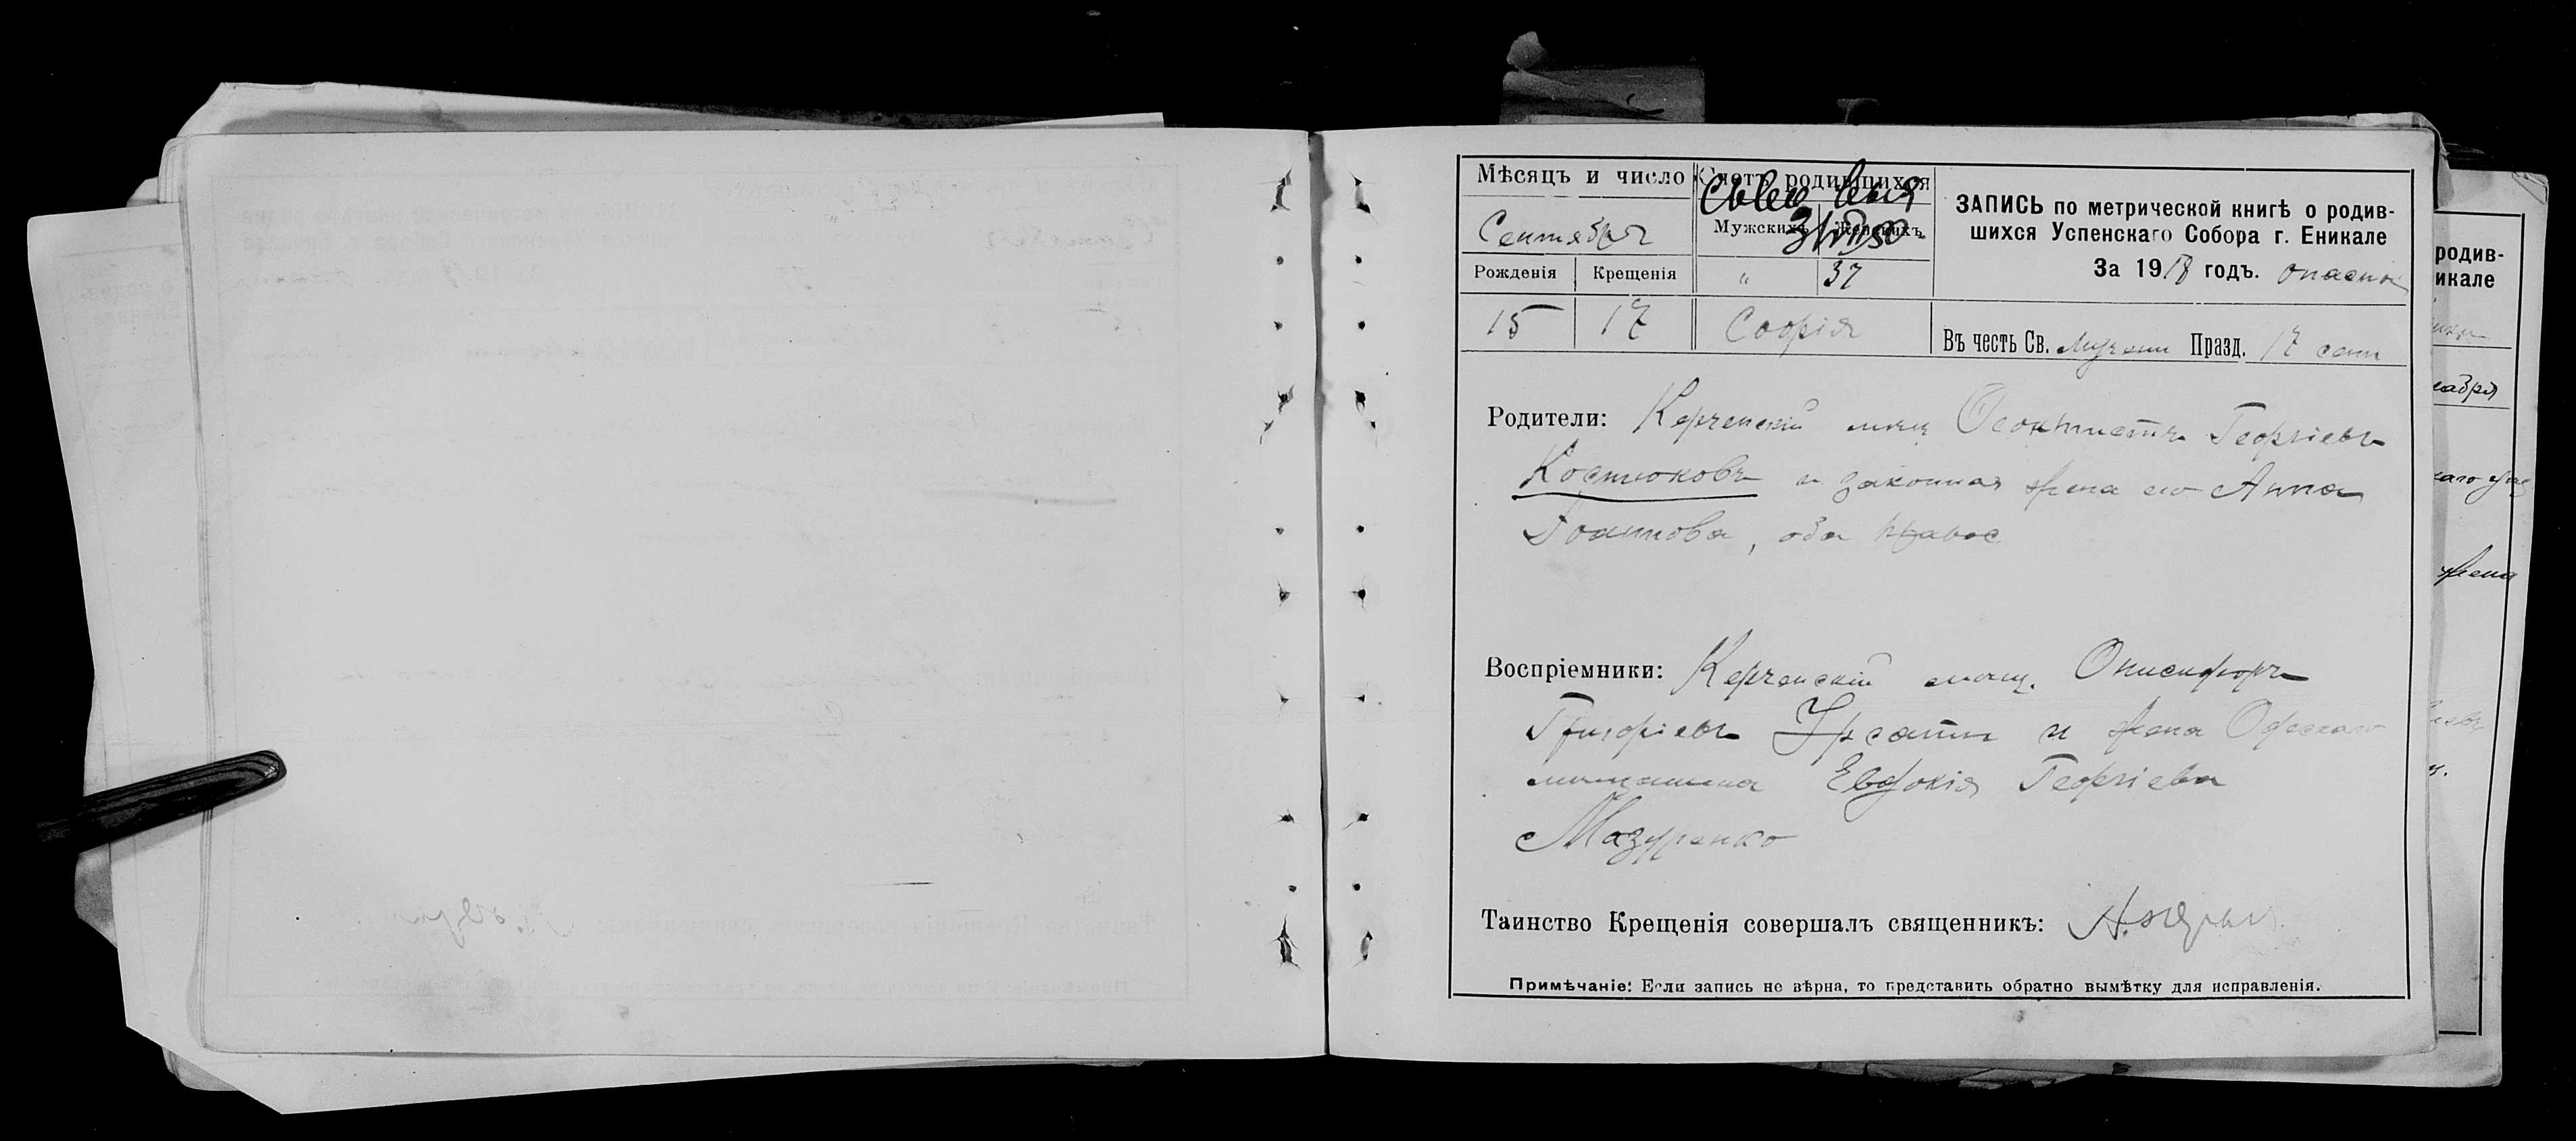 Мѣсяцъ и число
Счетъ родившихся
Сентября
Мужскихъ
Женскихъ
Рожденія
Крещенія
"
37
15
17
Софія
ЗАПИСЬ по метрической книгѣ о родив-
шихся Успенскаго Собора г. Еникале
За 1918 годъ.
Въ честь Св. Мучени Празд. 17 сент
Родители: Керченскій мѣщ Ѳеоктистъ Георгіевъ
Костюковъ и законная жена его Анна
Іоаннова, оба правос
Воспріемники: Керченскій мѣщ. Онисифоръ
Григоріевъ и жена Одесскаго
мѣщанина Евдокія Георгіева
Мазуренко
Таинство Крещенія совершалъ священникъ:
Примѣчаніе: Если запись не вѣрна, то представить обратно вымѣтку для исправленія.
родив-
икале
жена